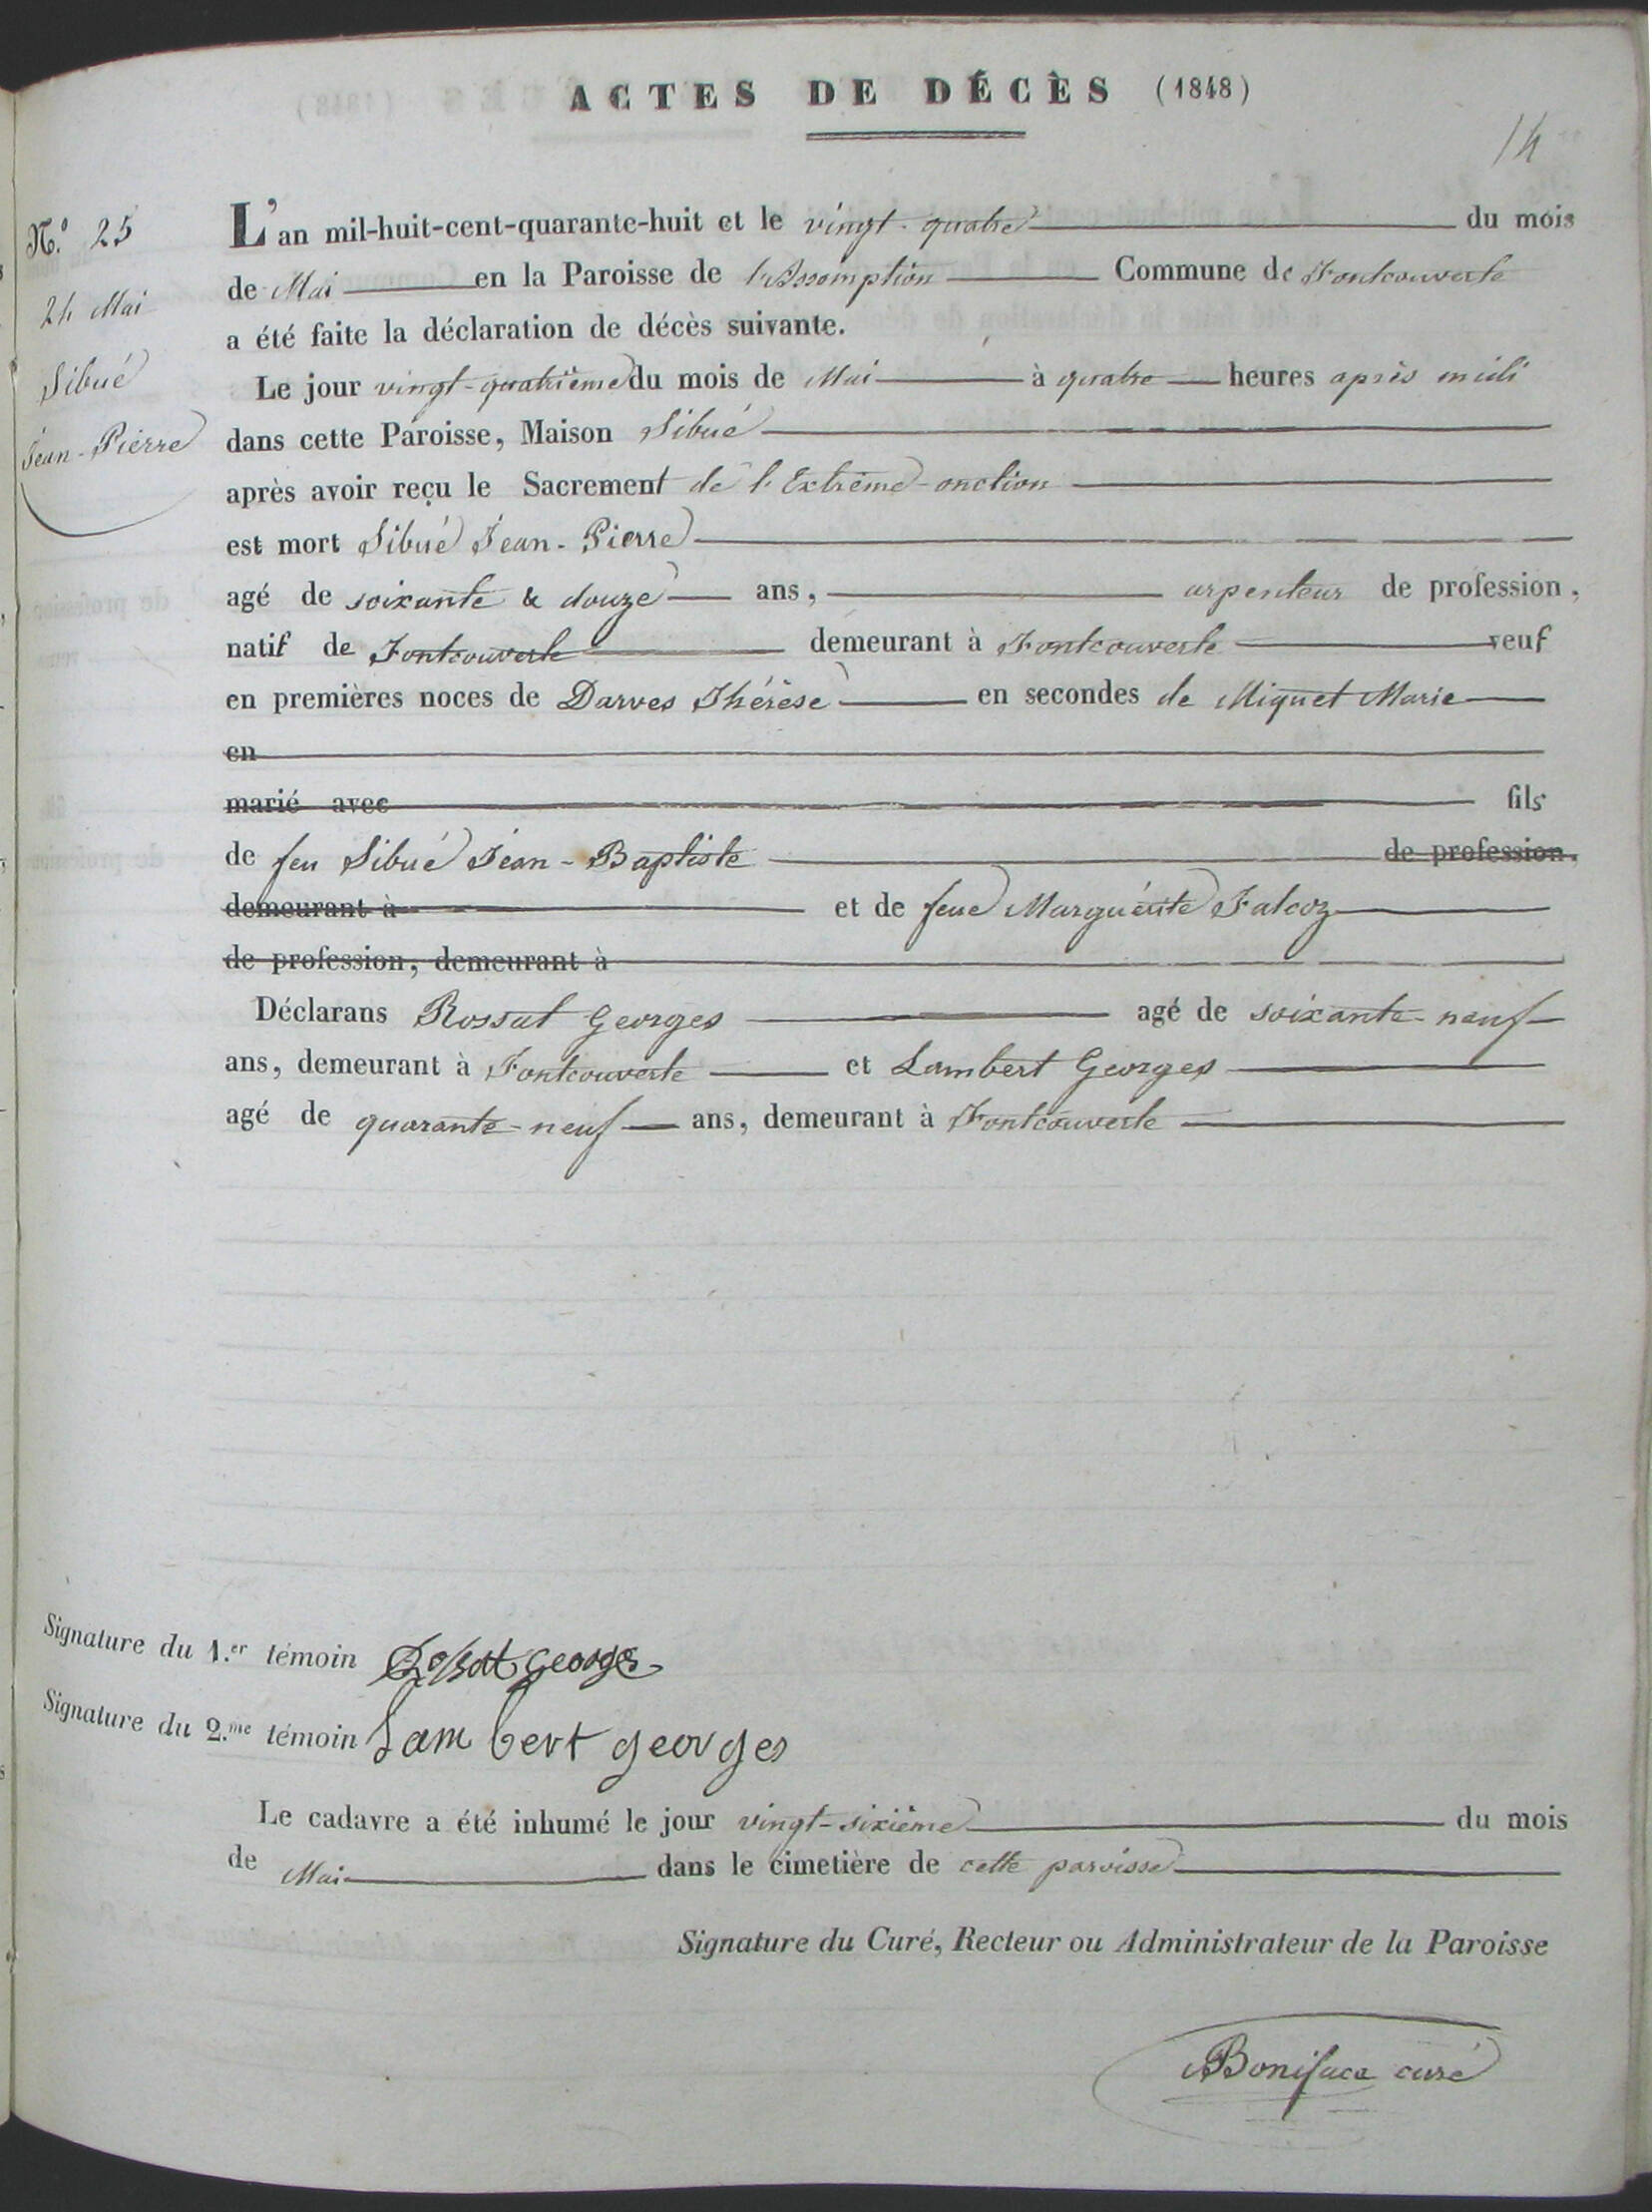 ACTES DE DÉCÈS (1848)
14
N.° 25
24 Mai
Sibué
Jean-Pierre
L'an mil-huit-cent-quarante-huit et le vingt-quatre du mois
de Mai en la Paroisse de l'Assomption Commune de Fontcouverte
a été faite la déclaration de décès suivante.
Le jour vingt-quatrième du mois de Mai à quatre heures après midi
dans cette Paroisse, Maison Sibué
après avoir reçu le Sacrement de l'Extrême-onction
est mort Sibué Jean-Pierre
agé de soixante & douze ans, arpenteur de profession,
natif de Fontcouverte demeurant à Fontcouverte veuf
en premières noces de Darves Thérèse en secondes de Miquet Marie
en
marié avec fils
de feu Sibué Jean-Baptiste de profession,
demeurant à et de feue Marguérite Falcoz
de profession, demeurant à
Déclarans Rossat Georges agé de soixante-neuf
ans, demeurant à Fontcouverte et Lambert Georges
agé de quarante-neuf ans, demeurant à Fontcouverte
Signature du 1.er témoin Rossat georges
Signature du 2.me témoin Lambert georges
Le cadavre a été inhumé le jour vingt-sixième du mois
de Mai dans le cimetière de cette paroisse
Signature du Curé, Recteur ou Administrateur de la Paroisse
Boniface curé